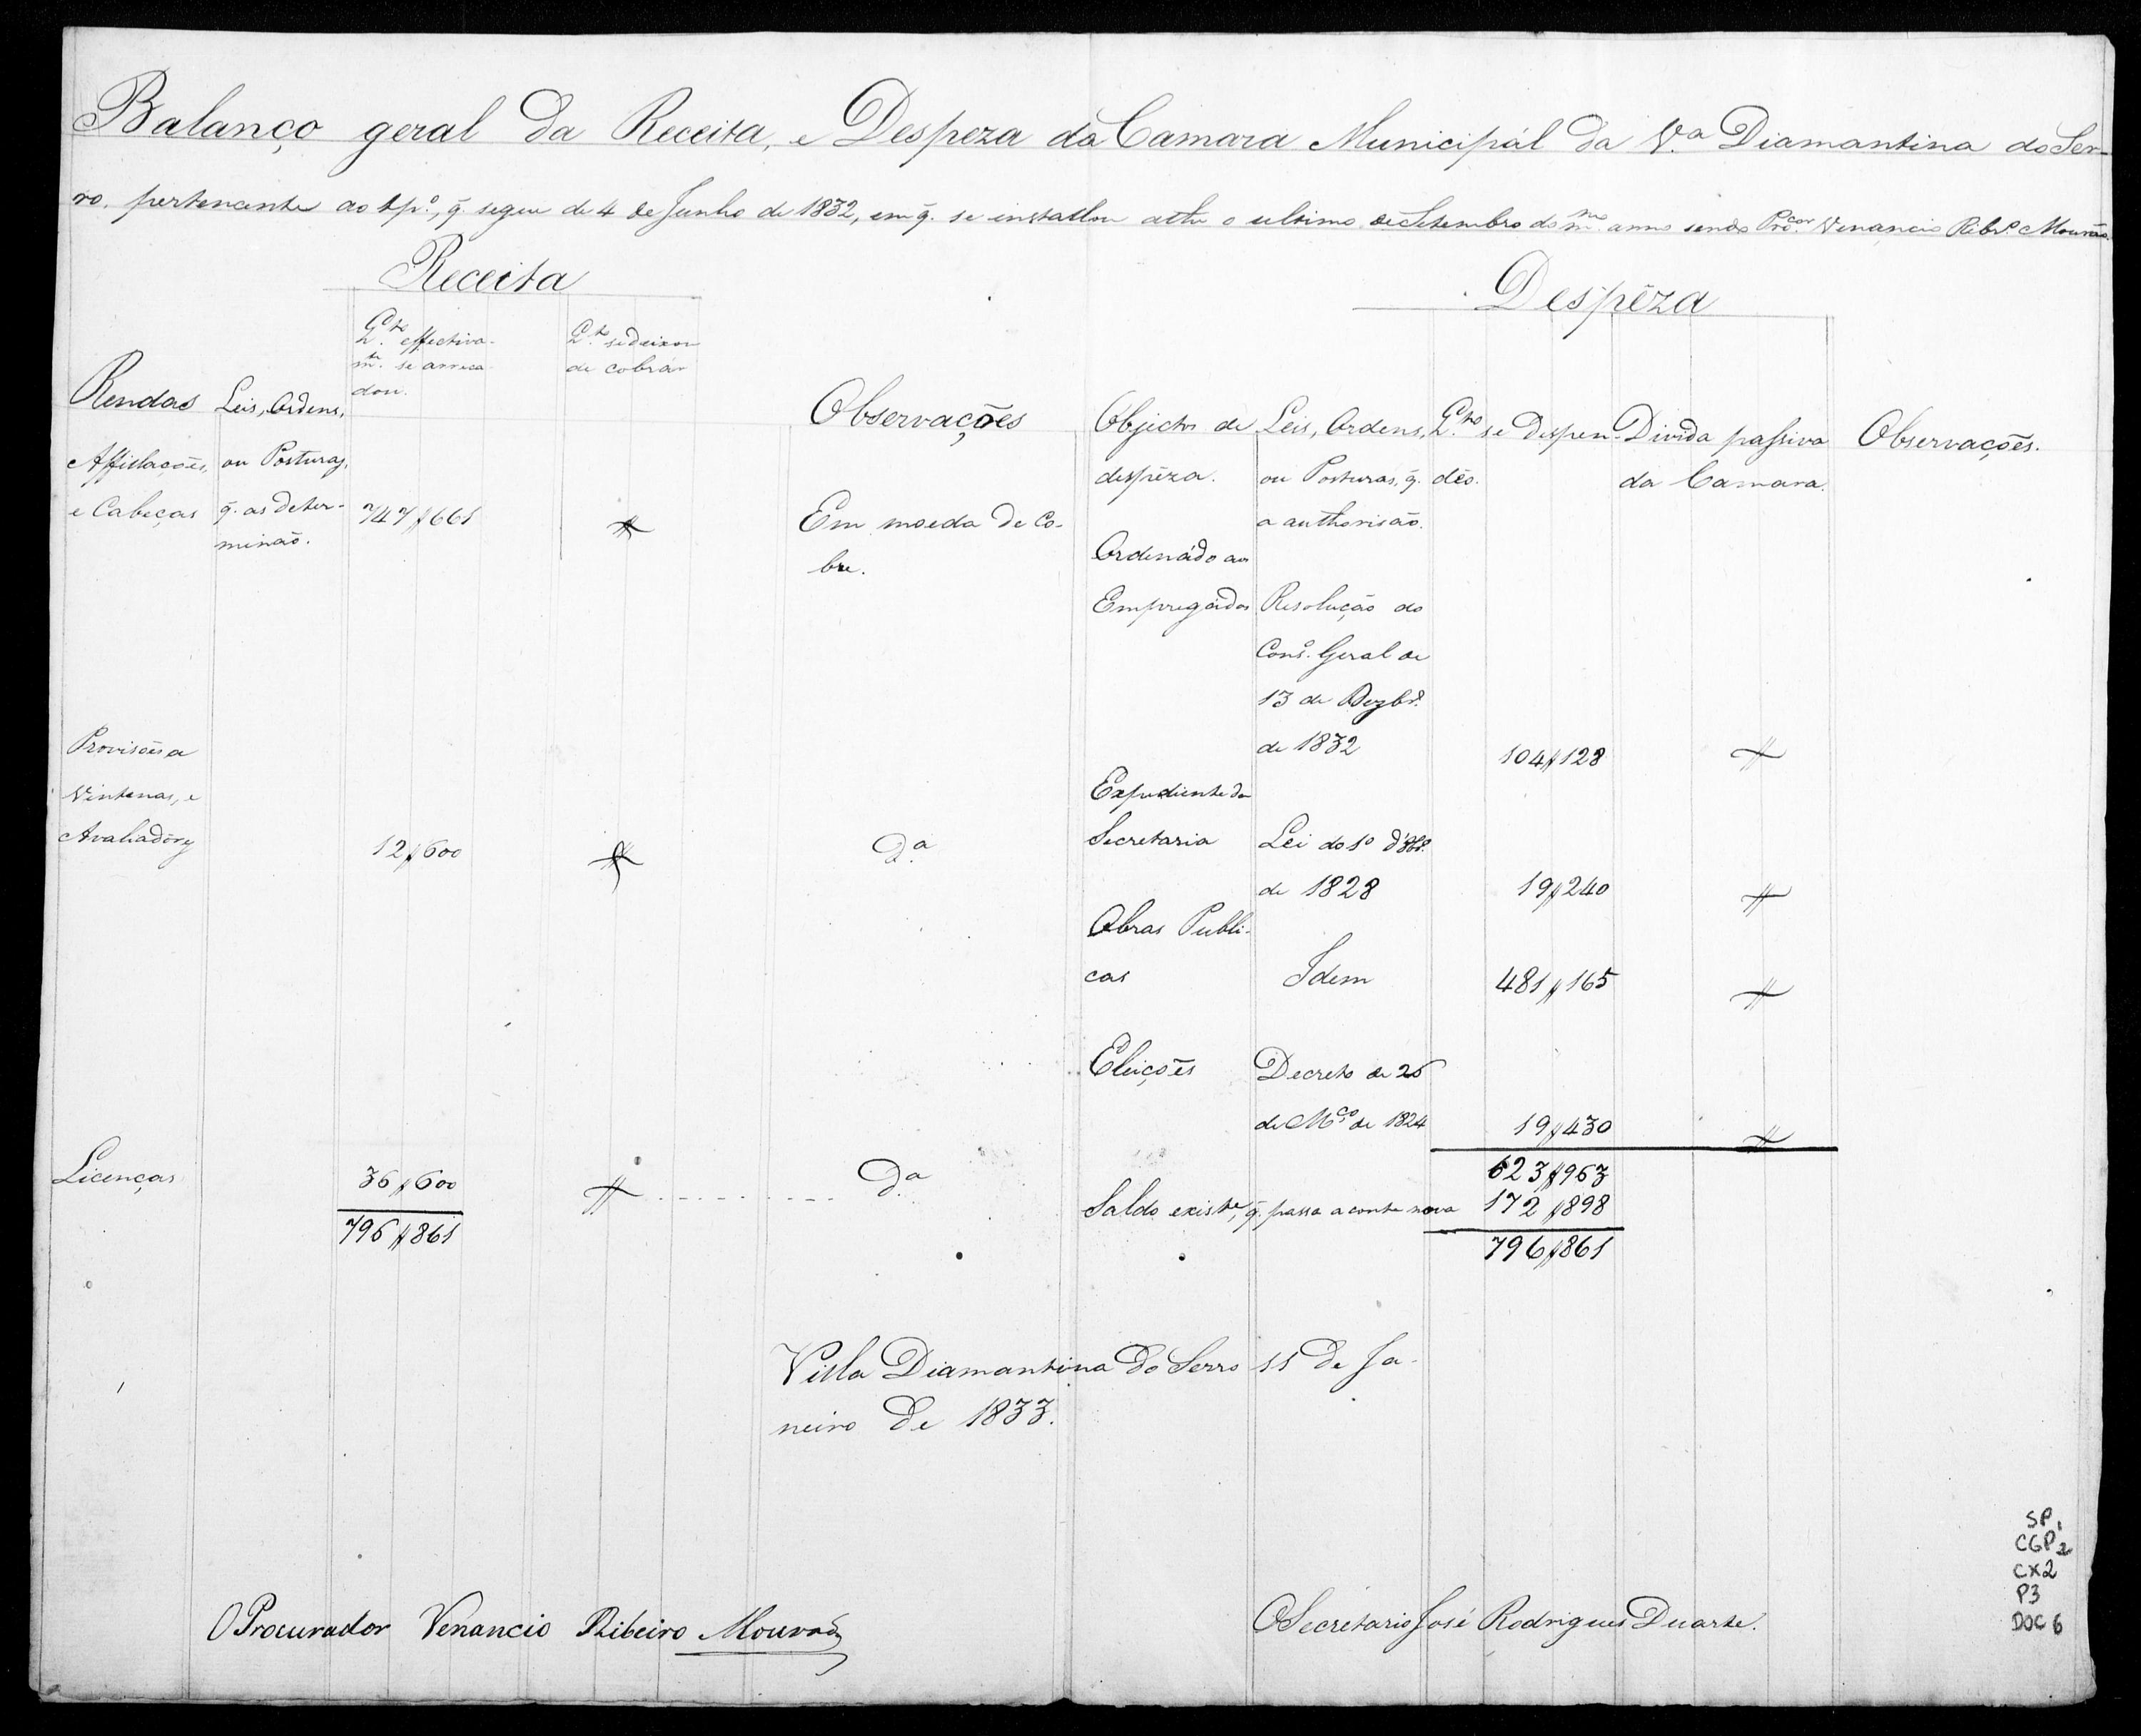 Balanço geral da Receita, e Despeza da Camara Municipál da V.ª Diamantina do Ser-
ro, pertencente ao tpº, q̃ segue de 4 de Junho de 1832, em q̃ se installou athe o ultimo de Setembro do m.mo anno sendo Pro.cor Venancio Ribr.º Mourão.
Receita
Rendas
Leis, Ordens,
ou Posturas,
q̃ as deter-
minaõ.
Q.to effectiva-
m.te se arreca-
dou.
Q.to se deixou
de cobrár
Observações
Affillações,
e Cabeças
747$661
Em moeda de Co-
bre.
Provisões a
Vintenas, e
Avaliadores
12$600
D.ª
Licenças
36$600
D.ª
796$861
Despêza
Objectos de
despêza.
Leis, Ordens,
ou Posturas, q̃
a authorisaõ.
Q.to se despen-
dêo.
Divida passiva
da Camara.
Observações.
Ordenádo aos
Empregádos
Resolução do
Cons.º Geral de
13 de Dezbr.º
de 1832
104$128
Expediente da
Secretaria
Lei do 1º d'8br.º
de 1828
19$240
Obras Publi-
cas
Idem
481$165
Eleições
Decreto de 26
de M.ço de 1824
19$430
623$963
Saldo existe, q̃ passa a conta nova 172$898
796$861
Villa Diamantina do Serro 11 de Ja-
neiro de 1833.
O Procurador Venancio Ribeiro Mourão
O Secretario José Rodrigues Duarte.
SP1
CGP2
CX2
P3
DOC 6